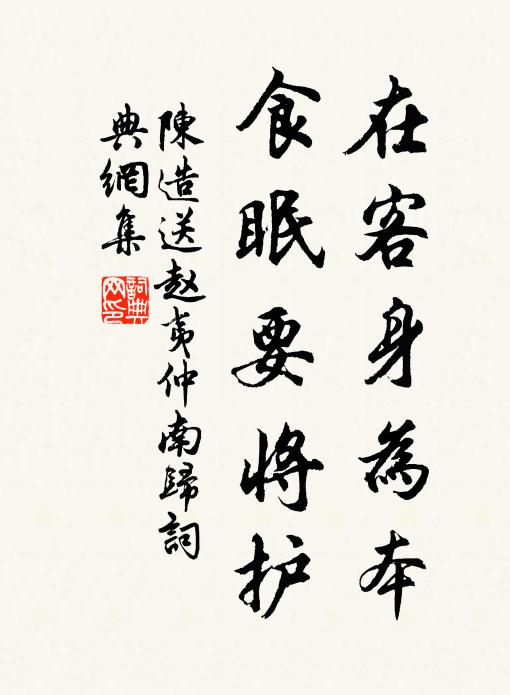 在客身為本
食眠要将护
陳造送赵夷仲南歸詞
典網集
詞典网印